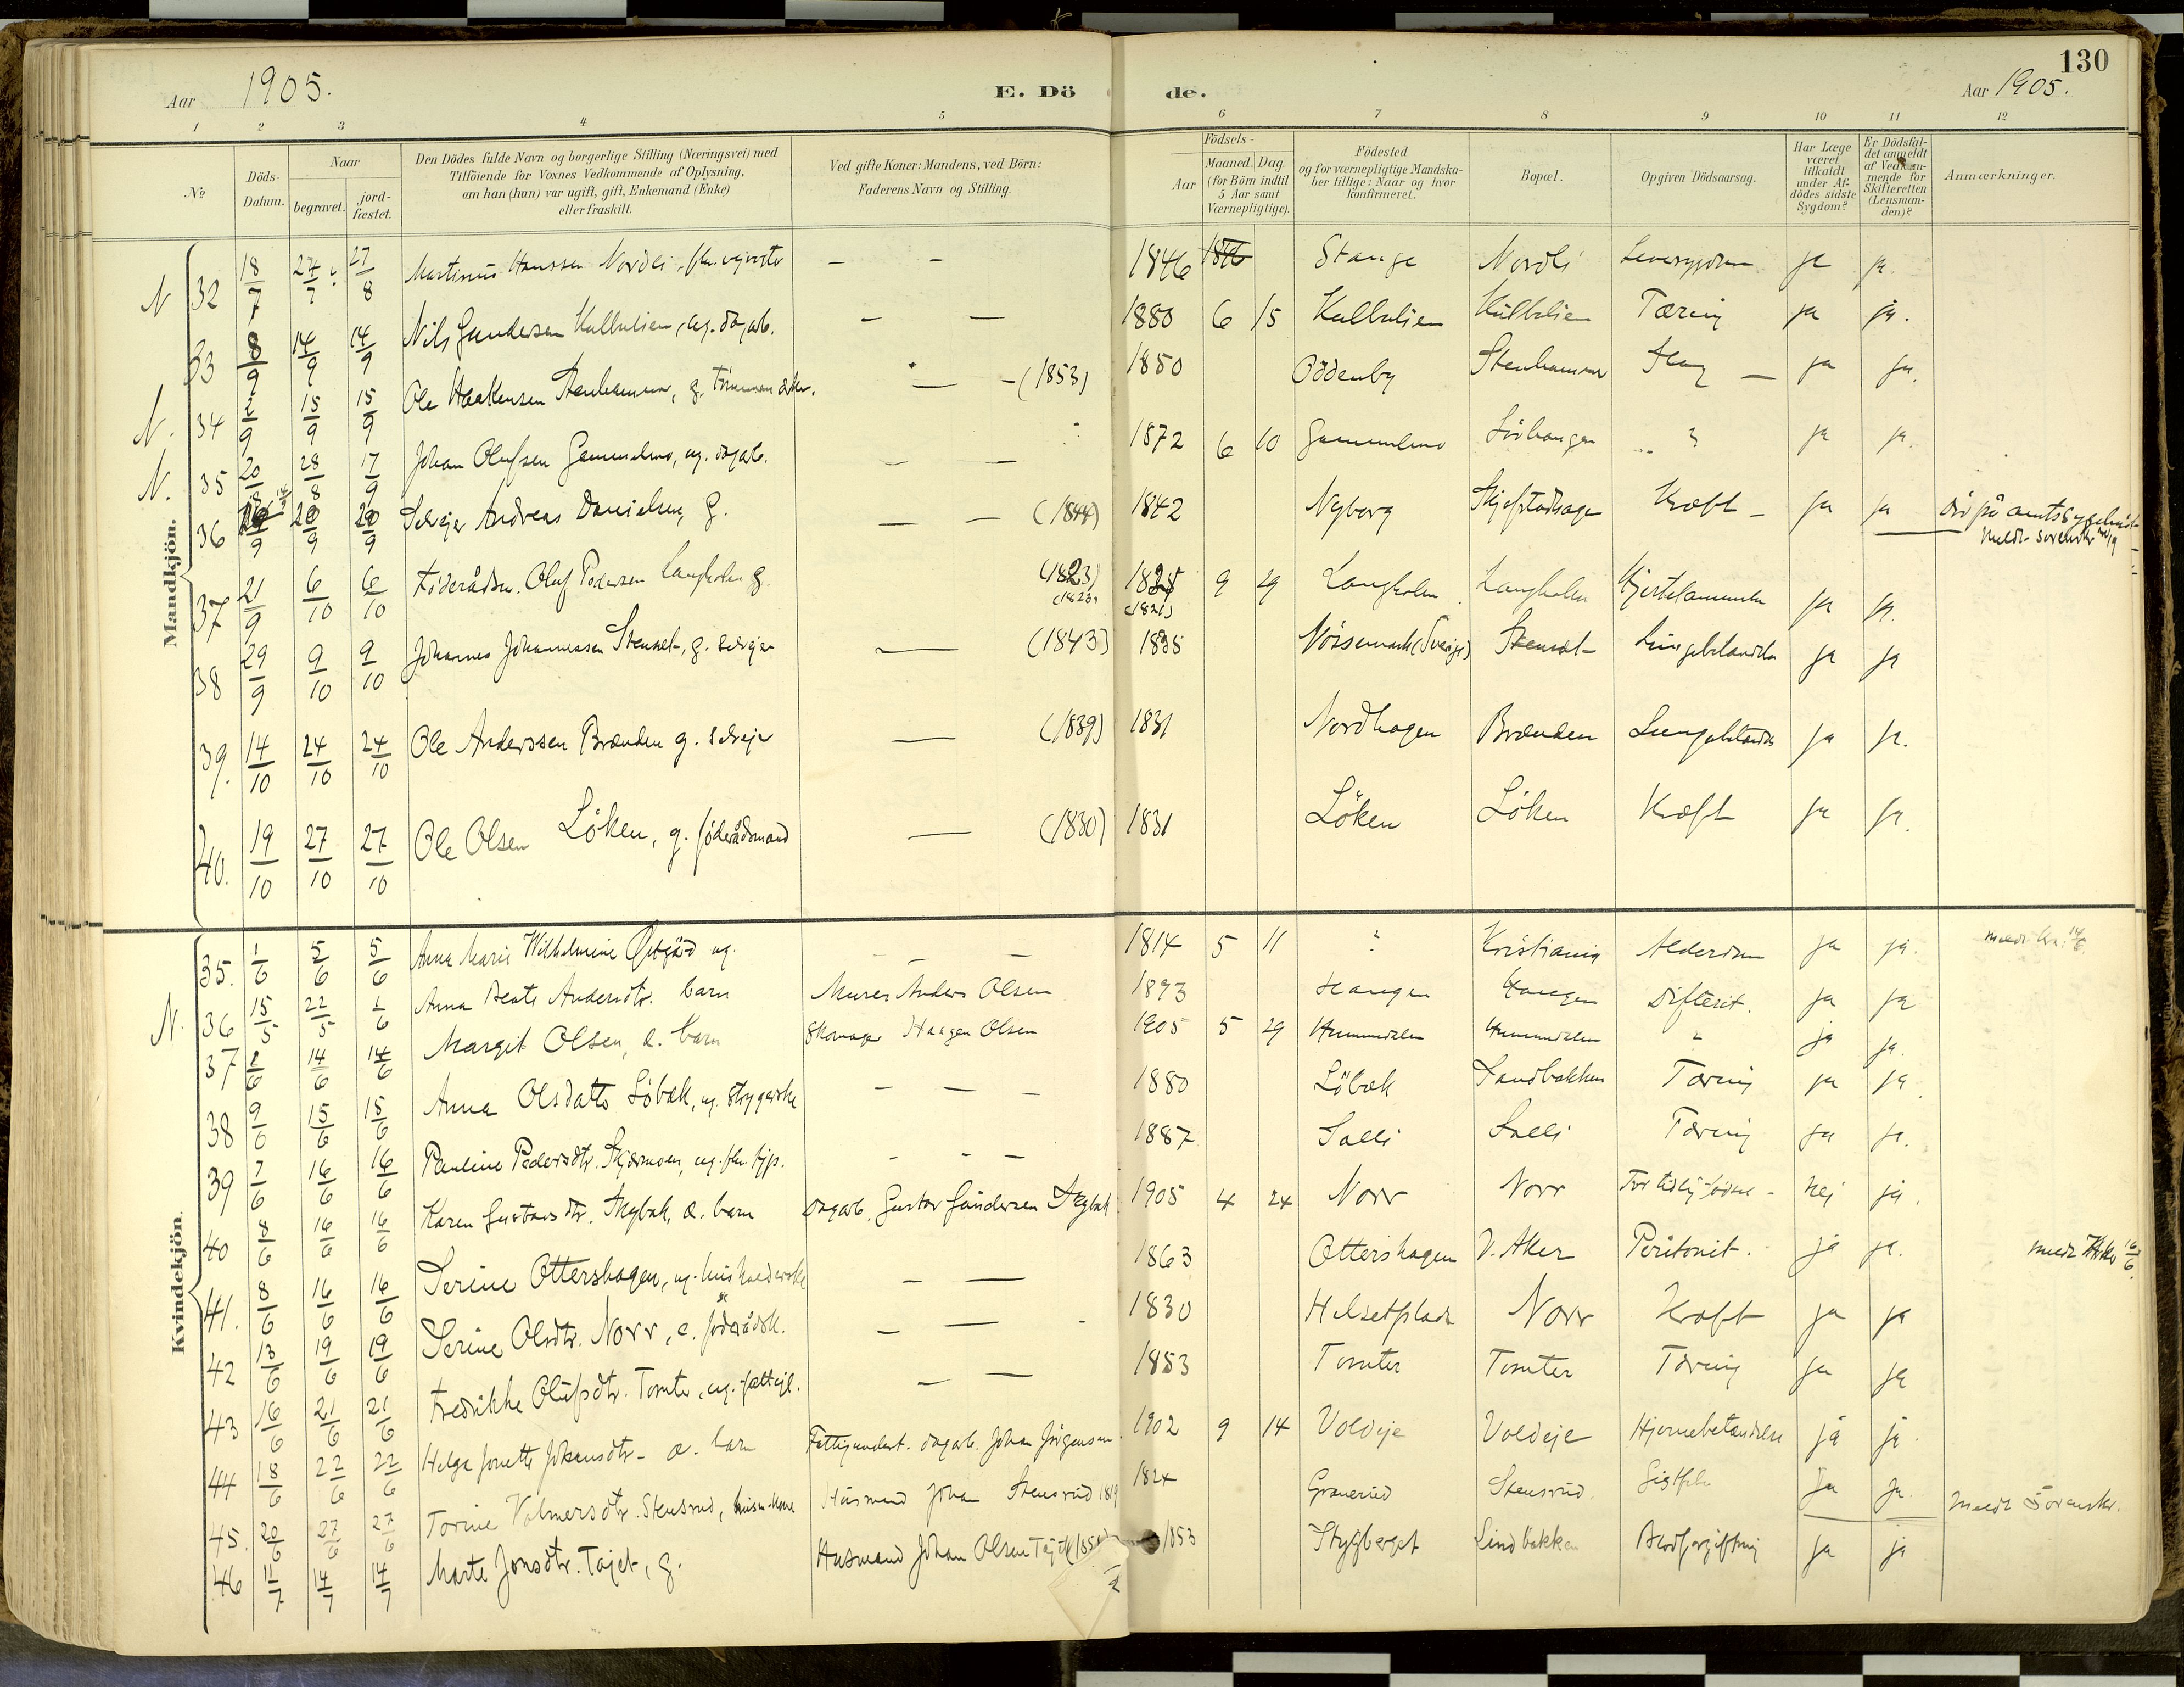 130
Aar 1905. E. Dö de. Aar 1905.
1 2 3 4 5 6 7 8 9 10 11 12
No
Döds-Datum.
Naar
begravet.
jord-fæstet.
Den Dödes fulde Navn og borgerlige Stilling (Næringsvei) med
Tilföiende for Voxnes Vedkommende af Oplysning,
om han (hun) var ugift, gift, Enkemand (Enke)
eller fraskilt.
Ved gifte Koner: Mandens, ved Börn:
Faderens Navn og Stilling.
Födsels-
Aar
Maaned. Dag.
(for Börn indtil
5 Aar samt
Værnepligtige).
Födested
og for værnepligtige Mandska-
ber tillige: Naar og hvor
konfirmeret.
Bopæl.
Opgiven Dödsaarsag.
Har Læge
været
tilkaldt
under Af-
dödes sidste
Sygdom?
Er Dödsfal-
det anmeldt
af Vedkom-
mende for
Skifteretten
(Lensman-
den)?
Anmærkninger.
Mandkjön.
N 32 18/7 27/7 27/8 Martinus Hanssen Nordli — — 1846 Stange Nordli Leversygdom ja ja.
33 8/9 14/9 14/9 Nils Gundersen Kulbulien, ug. dagarb. — — 1880 6 15 Kulbulien Kulbulien Tæring ja ja.
N. 34 2/9 15/9 15/9 Ole Haakensen Stenhammer, g. — — (1853) 1850 Oddenby Stenhammer — ja ja.
N. 35 20/8 28/8 17/9 Johan Olufsen Gammelmo, ug. dagarb. — — 1872 6 10 Gammelmo ja ja.
36 20/9 20/9 Selvejer Andreas Danielsen, g. — — (1844) 1842 Nyborg Skjefstadhagen Kræft — ja ja död på amtssygehuset
37 21/9 6/10 6/10 Föderådsm. Oluf Pedersen Langholen g. (1823) (1821) 9 29 Langholen Langholen Hjertelammelse ja ja.
38 29/9 9/10 9/10 Johannes Johannessen Stenset, g. selvejer — (1843) 1835 Nössemark (Sverige) Stenset Lungebetændelse ja ja
39. 14/10 24/10 24/10 Ole Anderssen Brænden g. selvejer — (1839) 1831 Nordhagen Brænden Lungebetændelse ja ja.
40. 19/10 27/10 27/10 Ole Olsen Löken, g. föderådsmand — (1830) 1831 Löken Löken Kræft ja ja.
Kvindekjön.
35. 1/6 5/6 5/6 Anna Marie Wilhelmine ug. — — 1814 5 11 ? Kristiania Alderdom ja ja. 14/6
N. 36 15/5 22/5 Anna Beate Andersdtr. barn Murer Anders Olsen 1893 Haugen Haugen Difterit. ja ja
37 14/6 14/6 Margit Olsen, æ. barn Skomager Haagen Olsen 1905 5 29 Hummedalen Hummedalen " ja ja.
38 9/6 15/6 15/6 Anna Olsdatter Löbæk, ug. strygerske — — — 1880 Löbæk Sandbakken Tæring ja ja.
39 7/6 16/6 16/6 Pauline Pedersdtr. Skjærmoen, ug. - - - 1887 Salli Salli Tæring ja ja.
40 8/6 16/6 16/6 Karen Gustavsdtr. Skybak, æ. barn Dagarb. Gustav Gundersen Skybak 1905 4 24 Norr Norr For tidlig födsel - Nej ja.
41. 8/6 16/6 16/6 Serine Ottershagen, ug. husholderske — — 1863 Ottershagen V. Aker Peritonit. ja ja. 16/6
42 13/6 19/6 19/6 Serine Olsdtr. Norr, e. föderådsk. — — - 1830 Helsetplads Norr Kræft ja ja
43 16/6 21/6 21/6 Fredrikke Olufsdtr. Tomter, ug. fattigl. — — 1853 Tomter Tomter Tæring ja ja
44 18/6 22/6 22/6 Helga Jonette Johansdtr. æ. barn Fattigunderst. dagarb. Johan Jörgensen. 1902 9 14 Voldeje Voldeje Hjernebetændelse ja ja.
45. 20/6 27/6 27/6 Torine Volmersdtr. Stensrud, Husmand Johan Stensrud 1819 1824 Granerud Stensrud. ja ja. Meldt Sorenskr.
46 11/7 14/7 14/7 Marte Jonsdtr. Tajet, g. Husmand Johan Olsen Tajet 1853 Stygberget Lindbakken Blodforgiftning ja ja